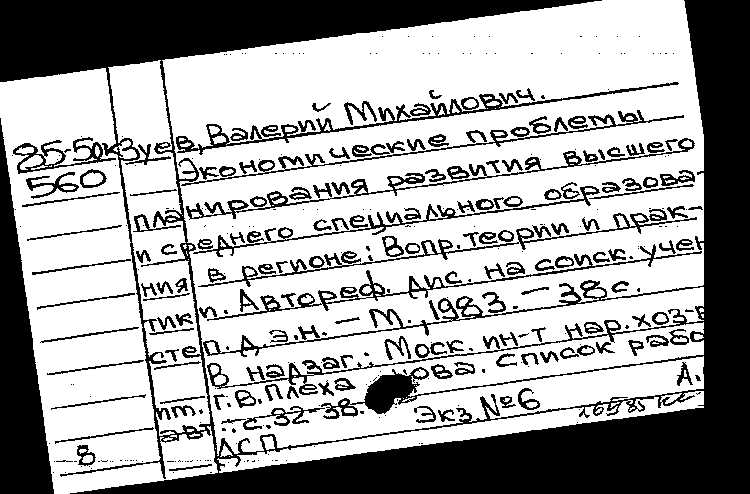 85-50к Зуев, Валерий Михайлович.
560 Экономические проблемы
планирования развития высшего
и среднего специального образова-
ния в регионе: Вопр. теории и прак-
тики. Автореф. дис. на соиск. учен
степ. д.э.н. – М., 1983. – 38 с.
В надзаг.: Моск. ин-т нар. хоз-в
им. Г.В. Плеха нова. Список рабо
авт.: с. 32-38. Экз. №6 А.
8 ДСП.